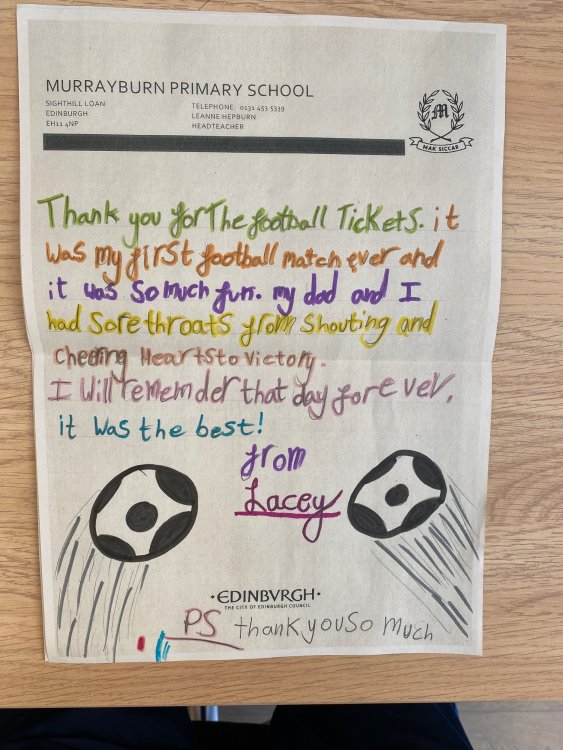 MURRAYBURN PRIMARY SCHOOL
SIGHTHILL LOAN
EDINBURGH
EH11 4NP
TELEPHONE: 0131 453 5339
LEANNE HEPBURN
HEADTEACHER
M
MAK SICCAR
Thank you for The football Tickets. it
was my first football match ever and
it was so much fun. my dad and I
had sore throats from shouting and
cheering Hearts to victory.
I Will rememder that day forever.
it was the best!
from
Lacey
•EDINBVRGH•
THE CITY OF EDINBURGH COUNCIL
PS thank you so much